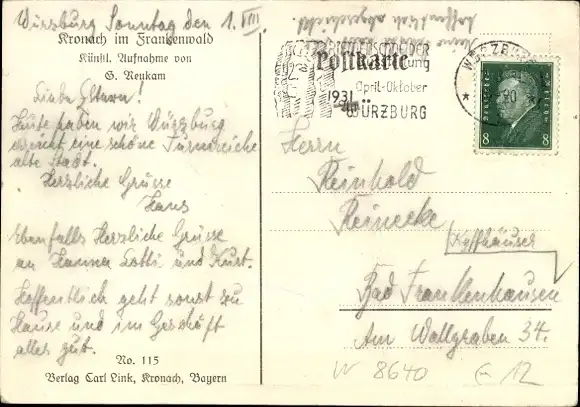 Würzburg Sonntag den 1. VIII
Kronach im Frankenwald
Künstl. Aufnahme von
G. Neukam
Liebe Eltern!
Heute haben wir Würzburg
erreicht eine schöne Türmereiche
alte Stadt.
Herzliche Grüsse
Hans
Ebenfalls Herzliche Grüsse
an Hanna Lotti und Kurt.
Hoffentlich geht sonst zu
Hause und im Geschäft
alles gut.
No. 115
Verlag Carl Link, Kronach, Bayern
hoffentlich abgeschickt
Postkarte
April-Oktober
1931
WÜRZBURG
WÜRZBURG
Deutsches Reich
8 8
Herrn
Reinhold
Reinecke
Kyffhäuser
Bad Frankenhausen
Am Wallgraben 34.
W 8640
E 12